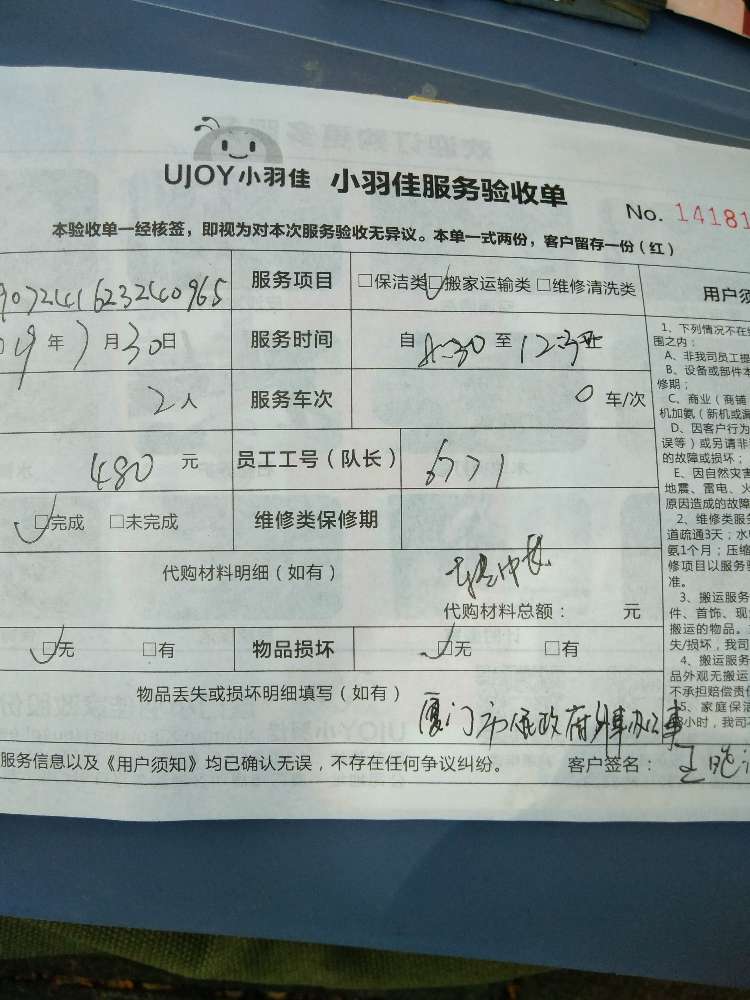 UJOY小羽佳 小羽佳服务验收单
No. 14181
本验收单一经核签，即视为对本次服务验收无异议。本单一式两份，客户留存一份（红）
907241623240965 服务项目 □保洁类 □搬家运输类 □维修清洗类
用户须
19年7月30日 服务时间 自 8:30 至 12:30
2人 服务车次 0 车/次
480 元 员工工号（队长） 6771
□完成 □未完成 维修类保修期
代购材料明细（如有）
代购材料总额： 元
□无 □有 物品损坏 □无 □有
物品丢失或损坏明细填写（如有）
厦门市人民政府外事办公室
服务信息以及《用户须知》均已确认无误，不存在任何争议纠纷。 客户签名：
1、下列情况不在
围之内：
A、非我司员工提
B、设备或部件本
修期；
C、商业（商铺
机加氨（新机或漏
D、因客户行为
误等）或另请非
的故障或损坏；
E、因自然灾害
地震、雷电、火
原因造成的故障
2、维修类服务
道疏通3天；水电
氨1个月；压缩
修项目以服务验
准。
3、搬运服务
件、首饰、现
搬运的物品。
失/损坏，我司
4、搬运服务
品外观无搬运
不承担赔偿责
5、家庭保洁
8小时，我司不